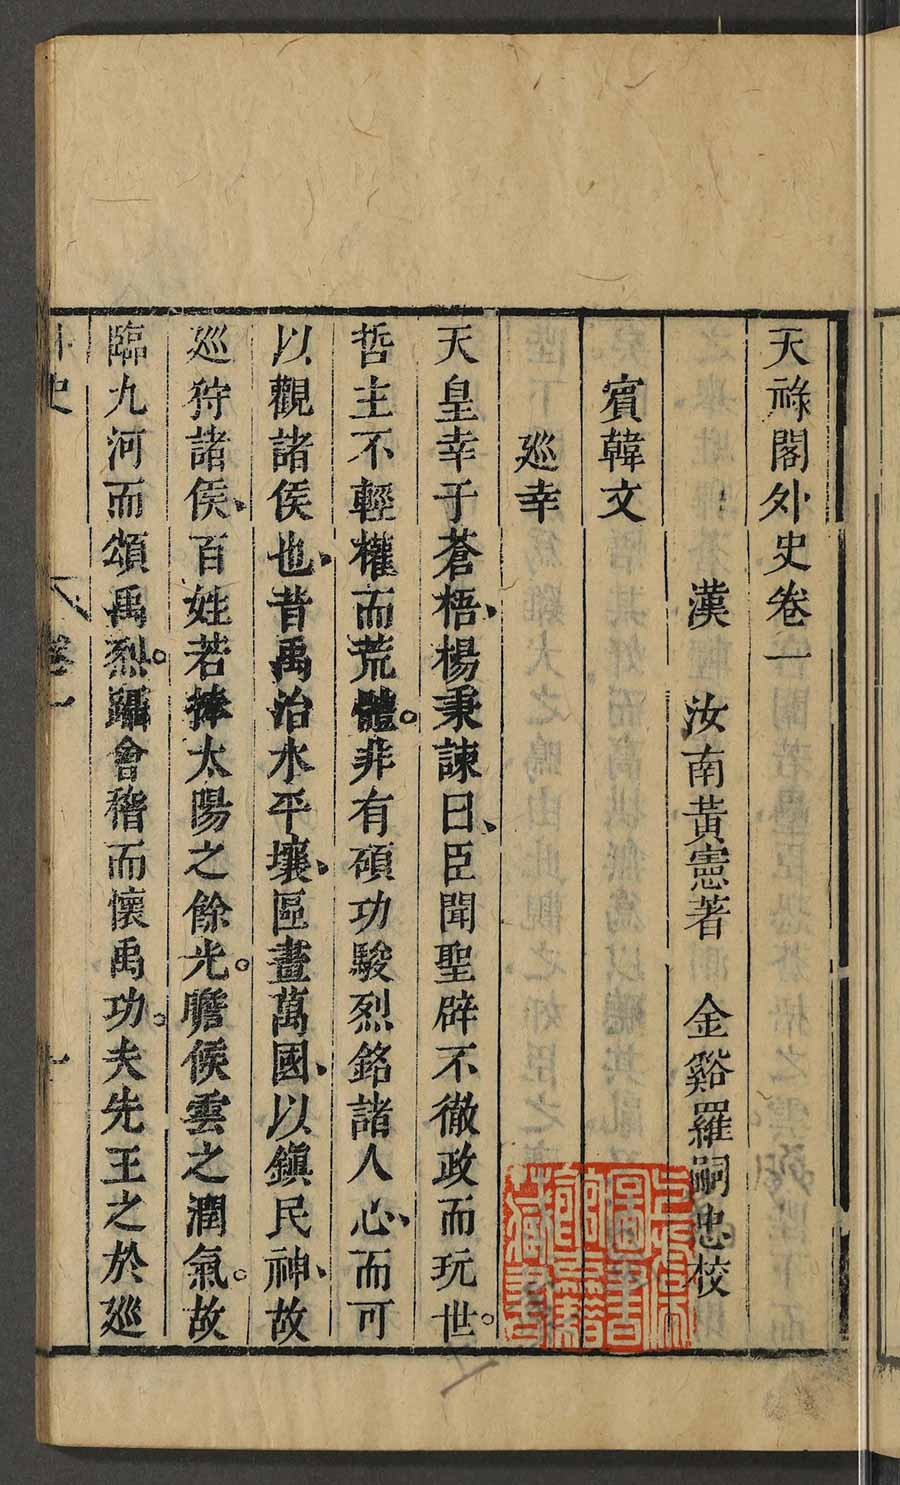 天祿閣外史卷一
漢 汝南黃憲著 金谿羅嗣忠校
賓韓文
巡幸
天皇幸于蒼梧、楊秉諫曰、臣聞聖辟不徹政而玩世。
哲主不輕權而荒體。非有碩功駿烈銘諸人心、而可
以觀諸侯也、昔禹治水平壤、區畫萬國、以鎮民神、故
巡狩諸侯、百姓若捧太陽之餘光。瞻候雲之潤氣。故
臨九河而頌禹烈。躡會稽而懷禹功。夫先王之於巡
外史 卷一